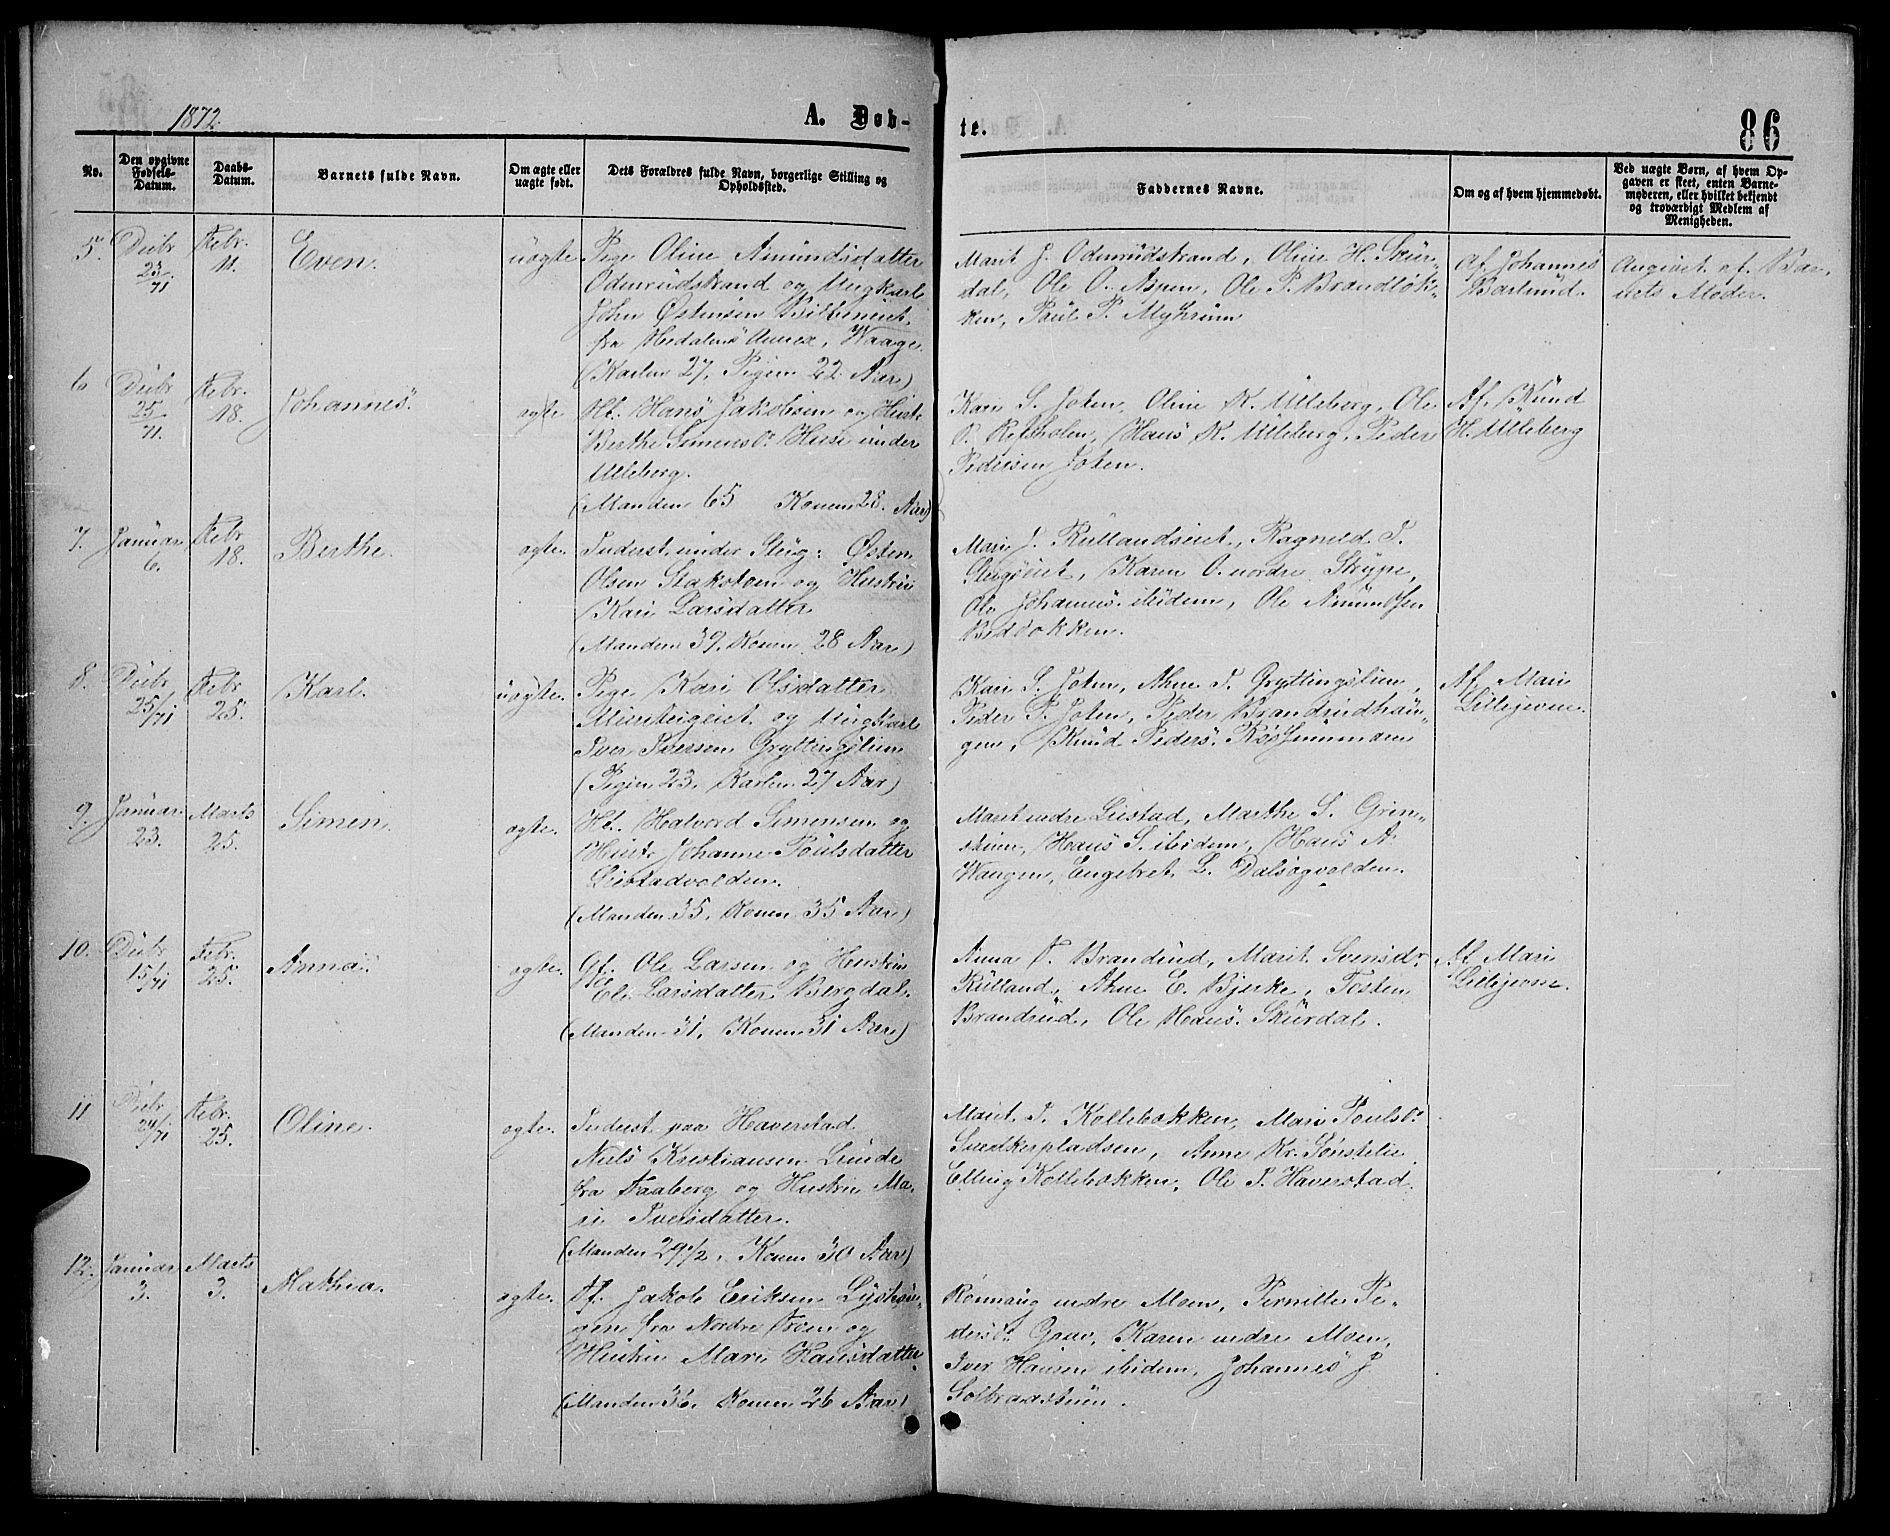 1872.
A. Døb-
te.
86
No.
Den opgivne Fødsels-Datum.
Daabs-Datum.
Barnets fulde Navn.
Om ægte eller uægte født.
Dets Forældres fulde Navn, borgerlige Stilling og Opholdssted.
Faddernes Navne.
Om og af hvem hjemmedøbt.
Ved uægte Børn, af hvem Op-
gaven er skeet, enten Barne-
moderen, eller hvilket bekjendt
og troværdigt Medlem af
Menigheden.
5. Debr 23/71 Febr. 11. Even. uægte
Pige Oline Amundsdatter
Odenrudstrand og Ungkarl
John Østensen
fra Hedalens Annex, Waage.
(Karlen 27, Pigen 22 Aar)
Marit J. Odenrudstrand, Oline H. Skur-
dal, Ole O. Aspen, Ole P. Brandløk-
ken, Paul P. Myhrum
Af Johannes
Barlund.
Angivet af Bar-
nets Moder.
6 Debr 25/71. Febr. 18. Johannes. ægte
Hans Jakobsen og Hustr.
Berthe Simensdr Huse under
Ulleberg.
(Manden 65 Konen 28 Aar)
Kari S. Joten, Oline K. Ulleberg, Ole
P. Refsholen, Hans K. Ulleberg, Peder
Pedersen Joten.
Af Knud
H. Ulleberg
7. Januar 6. Febr 18. Berthe. ægte.
Inderst under Steig: Østen
Olsen Stakstoen og Hustru
Kari Larsdatter
(Manden 39, Konen 28 Aar)
Mari J. Rullandseiet, Ragnild T.
Steigseiet, Karen O. nordre Skrype,
Ole Johannes. ibidem, Ole Amundsen
Bedbakken.
8. Debr 25/71 Febr 25. Karl. uægte.
Pige Kari Olsdatter
og Ungkarl
Iver Iversen Gryttingslien
(Pigen 23, Karlen 27 Aar)
Kari S. Joten, Ahne T. Gryttingslien,
Peder P. Joten, Peder Brandrudhau-
gen, Knud Peders.
Af Mari
Lillejevne.
9. Januar 23. Marts 25. Simen. ægte.
Halvord Simensen og
Hustr Johanne Poulsdatter
Liestadvolden.
(Manden 35, Konen 35 Aar)
Marit nedre Liestad, Marthe S. Grin-
stuen, Hans S. ibidem, Hans A.
Wangen, Engebret L. Dalsegvolden.
10. Debr 15/71 Febr. 25. Anna. ægte.
Gf. Ole Larsen og Hustru
Eli Larsdatter Bergdal.
(Manden 31, Konen 31 Aar)
Anna T. Brandrud, Marit Svensdr
Rulland, Ahne E. Bjerke, Tosten
Brandrud, Ole Hans. Skurdal.
Af Mari
Lillejevne.
11 Debr 24/71 Febr. 25. Oline. ægte.
Inderst paa Haverstad
Niels Kristiansen Lunde
fra Faaberg og Hustru Ma-
ri Iversdatter.
(Manden 29 1/2, Konen 30 Aar)
Marit I. Kollebakken, Mari Poulsdr
Snedkerpladsen, Anne Kr. Tønstelie
Elling Kollebakken, Ole P. Haverstad.
12. Januar 3. Marts 3. Mathea. ægte.
Jakob Eriksen Lyshau-
gen fra Nordre Froen og
Hustru Mari Hansdatter
(Manden 36. Konen 26 Aar)
Rønnaug nedre Moen, Pernille Pe-
dersdr Grav, Karen nedre Moen,
Iver Hansen ibidem, Johannes J.
Solbraastuen.